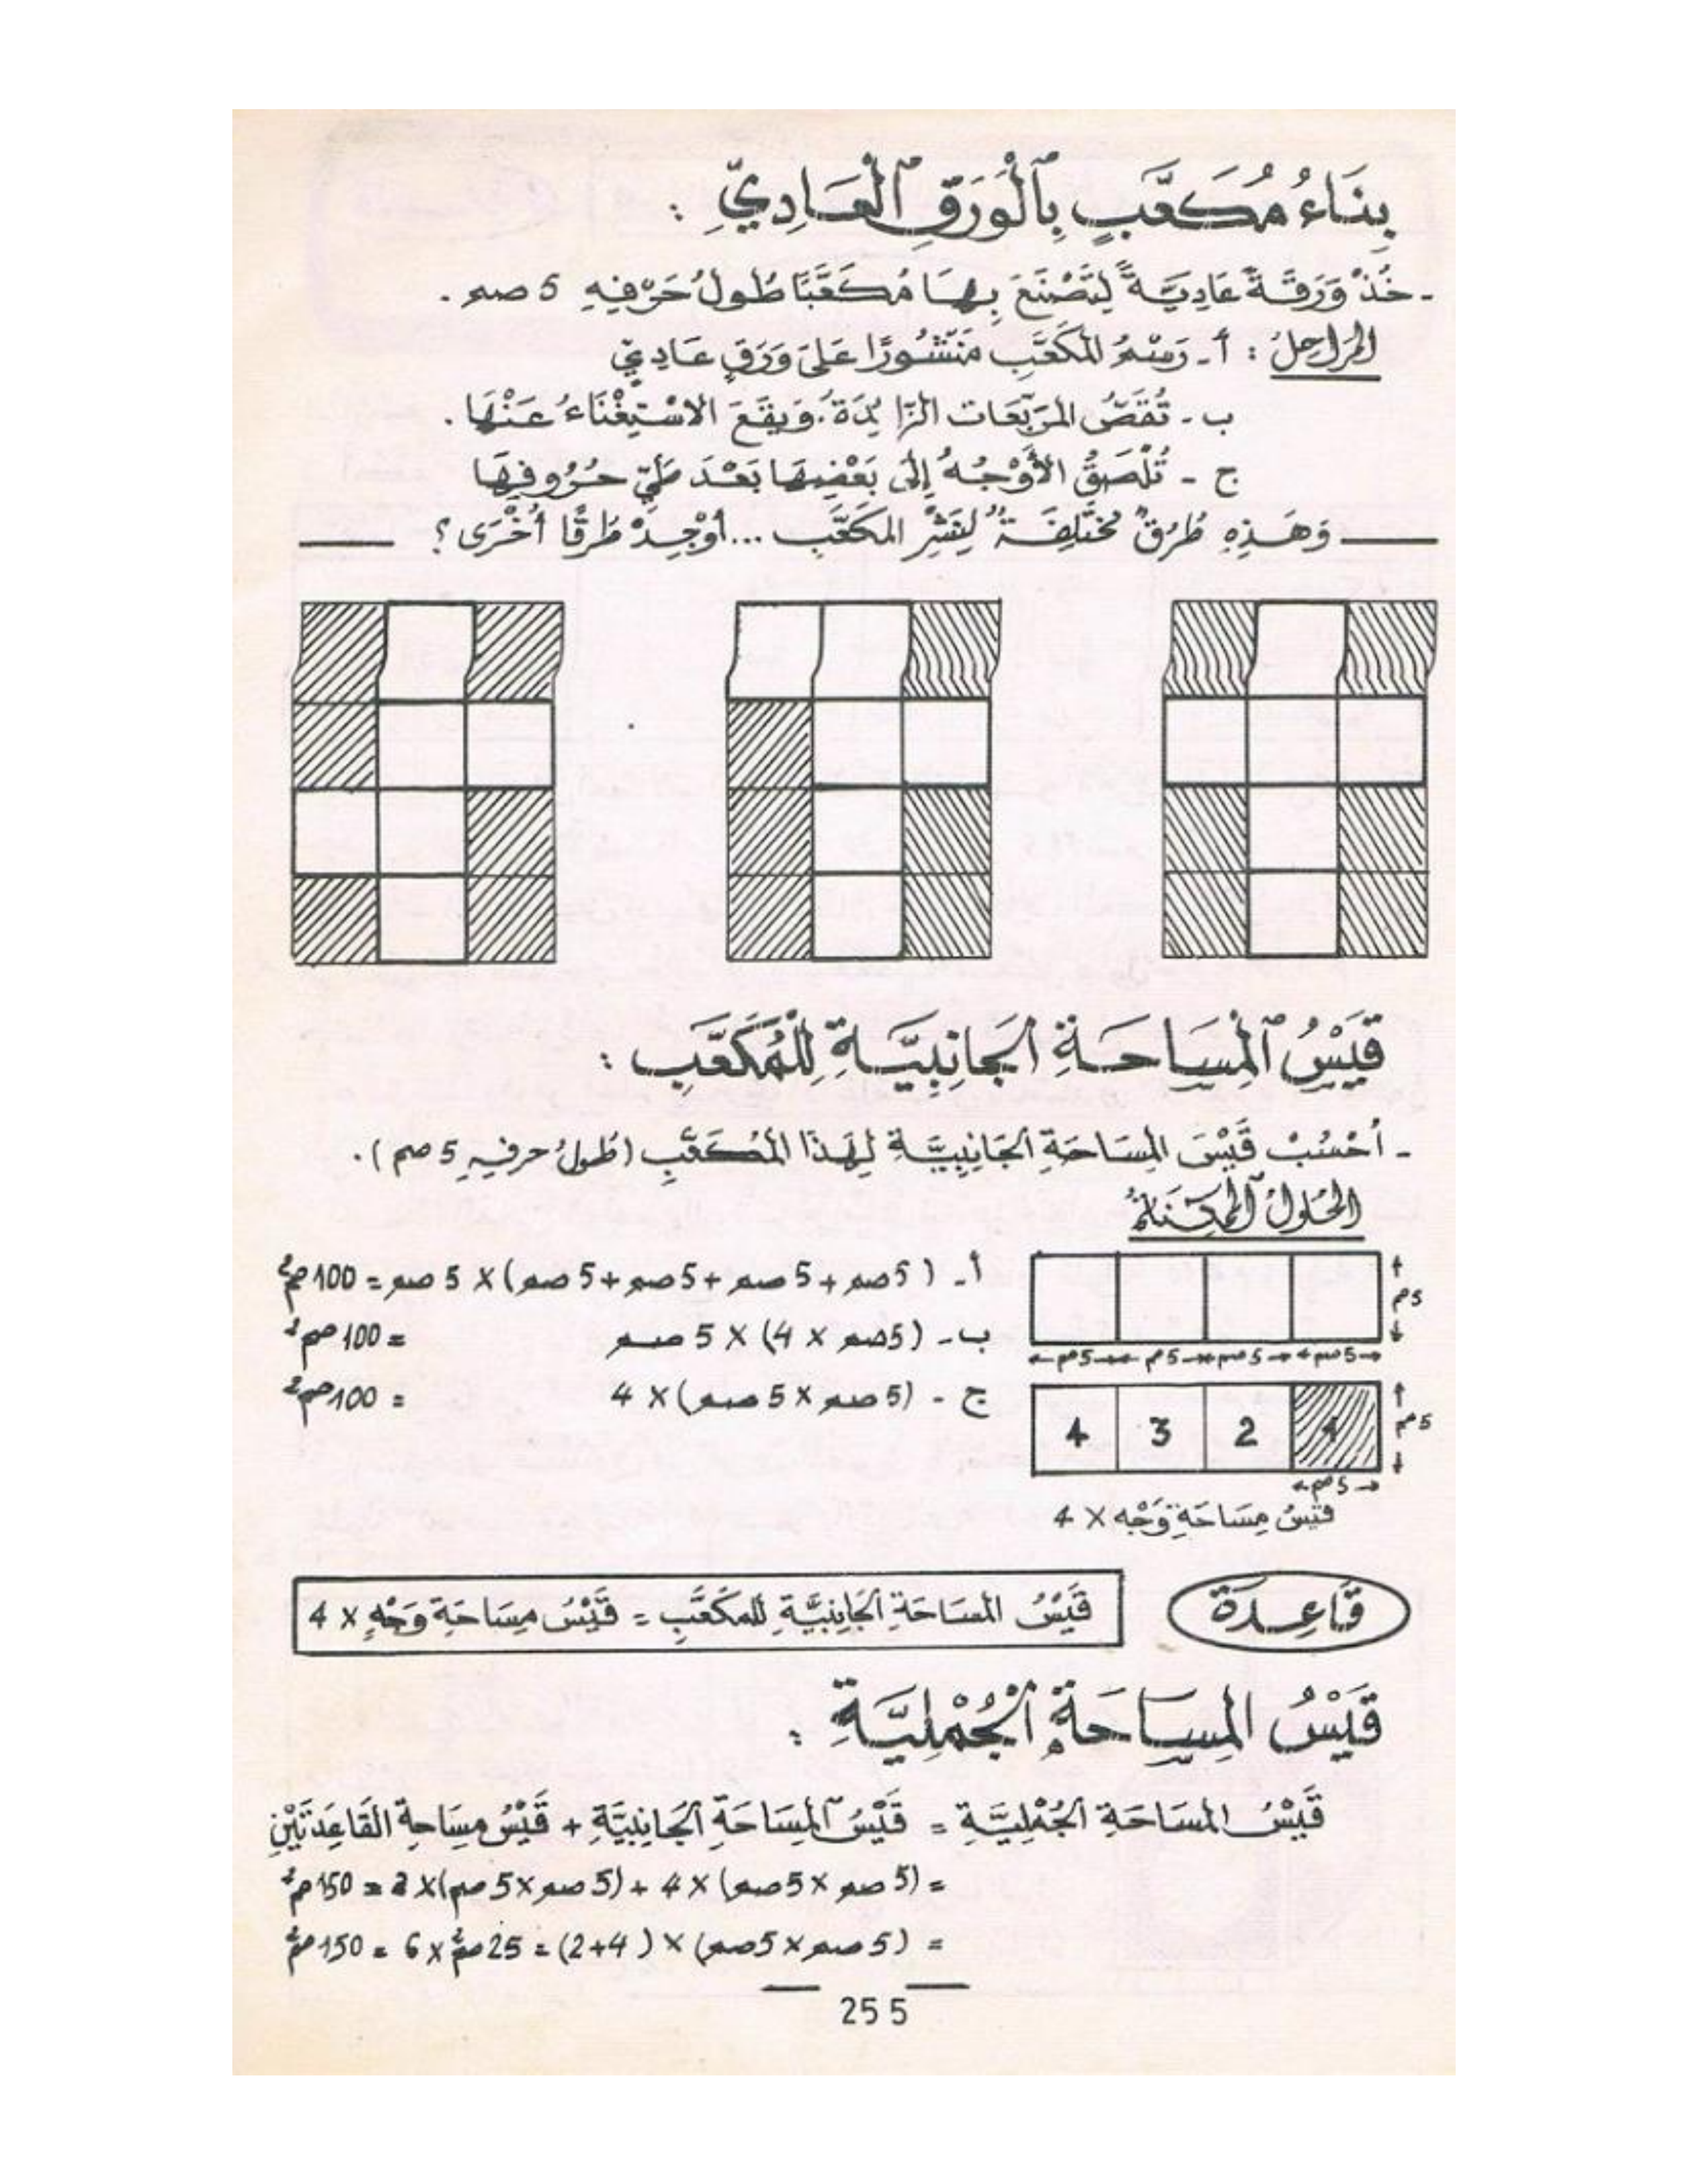 بِنَاءُ مُكَعَّبٍ بِٱلْوَرَقِ ٱلْعَادِيِّ :
- خُذْ وَرَقَةً عَادِيَّةً لِتَصْنَعَ بِهَا مُكَعَّبًا طُولُ حَرْفِهِ 5 صم .
المراحِلُ : أ - رَسْمُ المكَعَّبِ مَنْشُورًا عَلَى وَرَقٍ عَادِيٍّ
ب - تُقَصُّ المرَبَّعَات الزَّائِدَةُ. وَيقَعَ الاسْتِغْنَاءُ عَنْهَا .
ج - تُلْصَقُ الأَوْجُهُ إِلَى بَعْضِهَا بَعْدَ طَيِّ حُرُوفِهَا
وَهَذِهِ طُرُقٌ مُخْتَلِفَةٌ لِنَشْرِ المكَعَّبِ ... أَوْجِدْ طُرُقًا أُخْرَى ؟
قَيْسُ ٱلْمِسَاحَةِ الجَانِبِيَّةِ لِلْمُكَعَّبِ :
- أُحْسُبْ قَيْسَ المِسَاحَةِ الجَانِبِيَّةِ لِهَذَا المُكَعَّبِ (طُولُ حرفِهِ 5 صم) .
الحُلولُ ٱلْمُمْكِنَةُ
أ - ( 5 صم + 5 صم + 5 صم + 5 صم ) × 5 صم = 100 صم²
5 صم
ب - ( 5 صم × 4 ) × 5 صم = 100 صم²
5 صم 5 صم 5 صم 5 صم
ج - ( 5 صم × 5 صم ) × 4 = 100 صم²
1 2 3 4
5 صم
5 صم
قَيْسُ مِسَاحَةِ وَجْه × 4
قَاعِدَة
قَيْسُ المسَاحَةِ الجَانِبِيَّةِ للمكَعَّبِ = قَيْسُ مِسَاحَةِ وَجْهٍ × 4
قَيْسُ المِسَاحَةِ ٱلْجُمْلِيَّةِ :
قَيْسُ المسَاحَةِ الجُمْلِيَّةِ = قَيْسُ ٱلْمِسَاحَةِ الجَانِبِيَّةِ + قَيْسُ مِسَاحةِ القَاعِدَتَيْنِ
= ( 5 صم × 5 صم ) × 4 + ( 5 صم × 5 صم ) × 2 = 150 صم²
= ( 5 صم × 5 صم ) × ( 4+2 ) = 25 صم² × 6 = 150 صم²
255